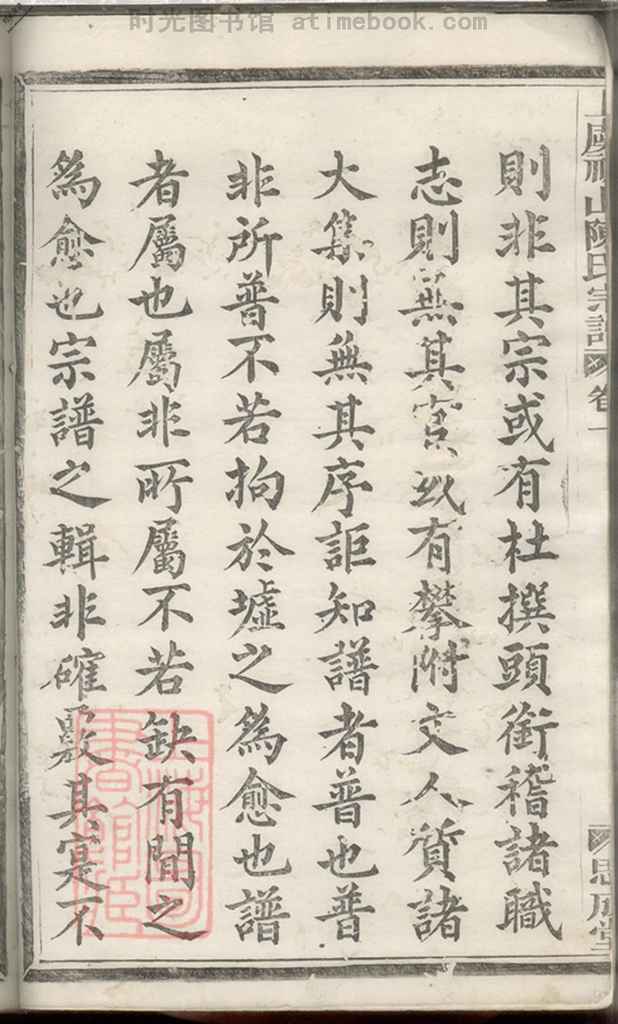 时光图书馆 atimebook.com
則非其宗或有杜撰頭銜稽諸職
志則無其實或有攀附文人質諸
大集則無其序詎知譜者普也普
非所普不若拘於墟之為愈也譜
者屬也屬非所屬不若缺有間之
為愈也宗譜之輯非確覈其寔不
山陳氏宗譜 卷一
思成堂